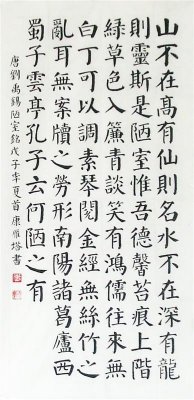 山不在高有仙則名水不在深有龍
則靈斯是陋室惟吾德馨苔痕上階
綠草色入簾青談笑有鴻儒往來無
白丁可以調素琴閱金經無絲竹之
亂耳無案牘之勞形南陽諸葛廬西
蜀子雲亭孔子云何陋之有
唐劉禹錫陋室銘戊子季夏康雁塔書